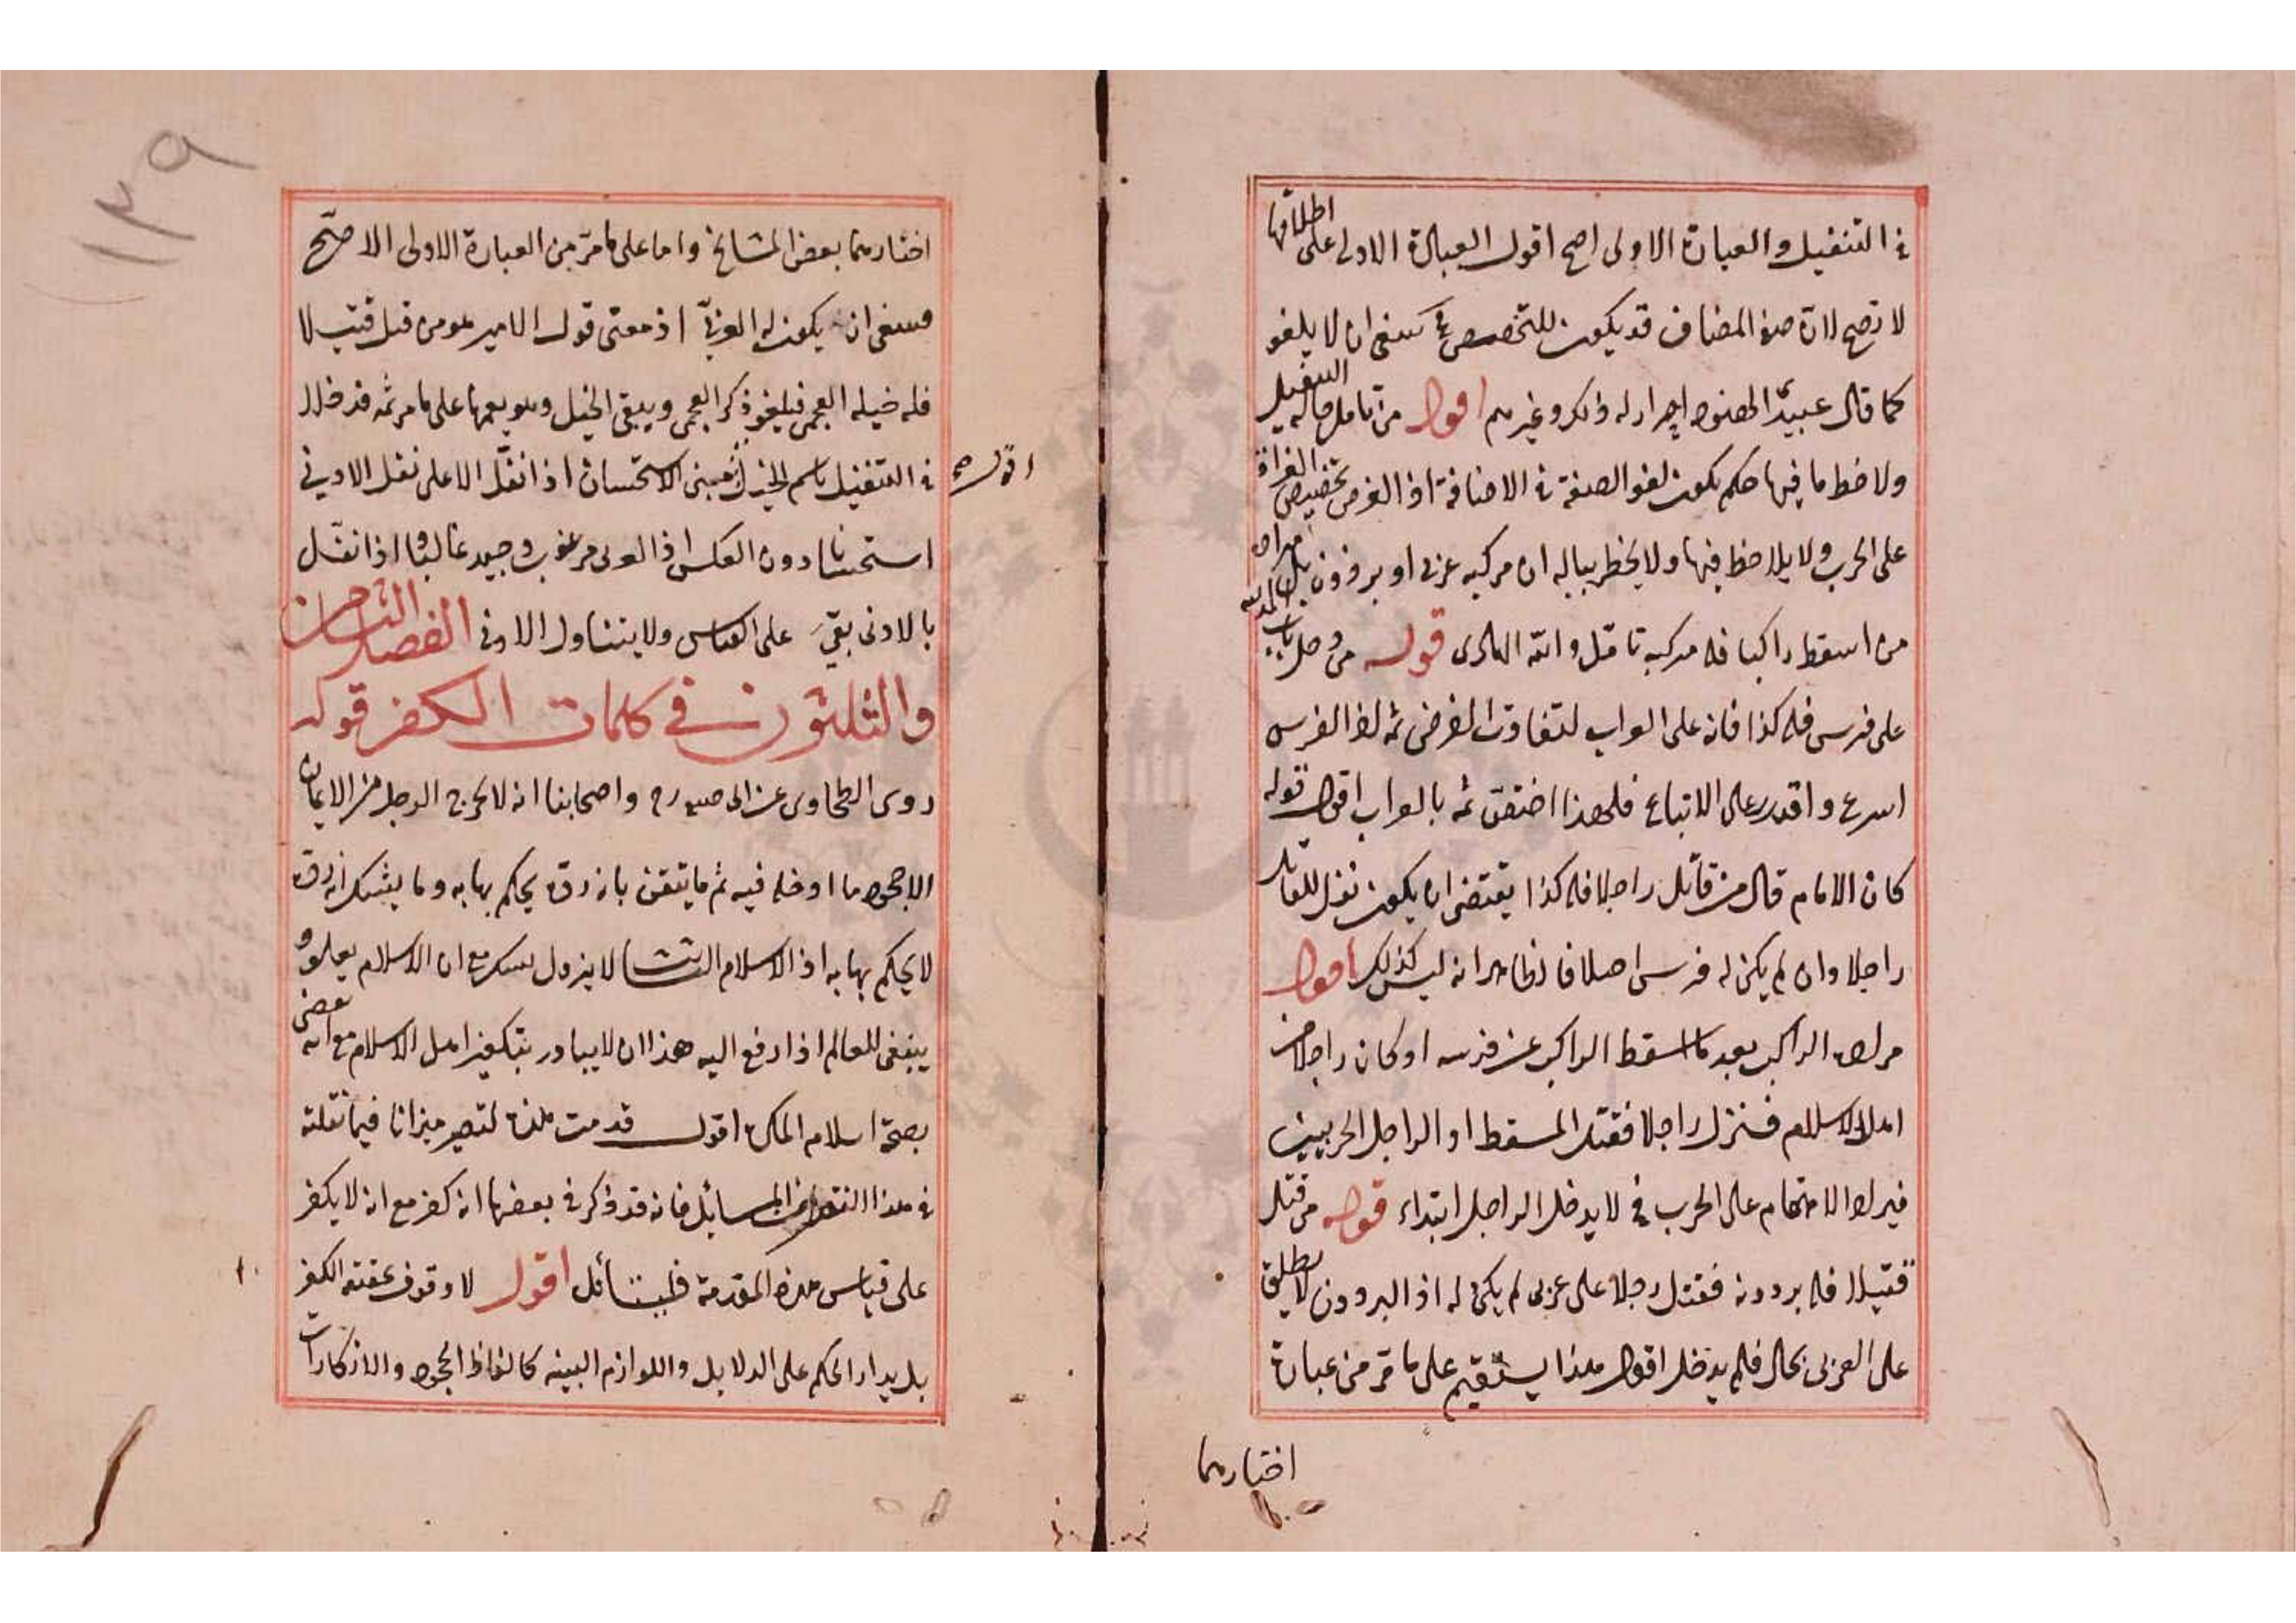 في التنفيل والعبارة الاولى اصح اقول العبارة الاولى على اطلاقها
لا تصح لان صفة المضاف قد يكون للتخصيص فح ينبغى ان لا يلغو
كما قال عبيدى احرار له ذلك وغيرهم اقول من تأمل حالة التنفيل
ولاحظ ما فيها حكم بكون لغو الصفة في الاضافة اذ الغرض تخصيص الغزاة
على الحرب ولا يلاحظ فيها ولا يخطر بباله ان مركبه عربى او برذون بل مراده
من اسقط راكبا فله مركبه تأمل والله الهادى قوله من دخل باب المدينة
على فرس فله كذا فانه على الدواب لتفاوت الغرض ثمه لان الفرس
اسرع واقدر على الاتباع فلهذا اختص ثمه بالدواب اقول قوله
كان الامام قال من قاتل راجلا فله كذا يقتضى ان يكون نفل للقاتل
راجلا وان لم يكن له فرس اصلا فالظاهر انه ليس كذلك اقول
الراكب بعد ما اسقط الراكب عن فرسه او كان راجلا من
اهل الاسلام فنزل راجلا فقتل المسقط او الراجل الحربيين
الاقتحام على الحرب فح لا يدخل الراجل ابتداء قوله من قتل
قتيلا فله برذونه فقتل رجلا على عربى لم يكن له اذ البرذون لا يطلق
على العربى بحال فلم يدخل اقول هذا يستقيم على ما مر من عبارة
اختارها
١٣٩
اختارها بعض المشايخ واما على ما مر من العبارة الاولى الاصح
فينبغى ان يكون له العربى اذ معنى قول الامير هو من قتل قتيلا
فله خيله العجمى فيلغو ذكر العجمى ويبقى الخيل وهو يعمها على ما مر ثمه فدخلا
في التنفيل باسم الخيل ثم مبنى الاستحسان اذا نفل الاعلى نفل الادنى
اقول صح
استحسانا دون العكس اذ العربى مرغوب وجيد غالبا واذا نفل
بالادنى بقى على القياس ولا يتناول الادنى الفصل الثامن
والثلثون في كلمات الكفر قوله
روى الطحاوى عن ابى حنيفه رح واصحابنا انه لا يخرج الرجل من الايمان
الا جحود ما ادخله فيه ثم ما يتيقن بانه ردة يحكم بها به وما يشك انه ردة
لا يحكم بها به اذ الاسلام الثابت لا يزول بشك مع ان الاسلام يعلو و
ينبغى للعالم اذا رفع اليه هذا ان لا يبادر بتكفير اهل الاسلام مع انه يقضى
بصحة اسلام المكره اقول قدمت هذه لتصير ميزانا فيما نقلته
في هذا الفصل من المسائل فانه قد ذكر في بعضها انه كفر مع انه لا يكفر
على قياس هذه المقدمة فليتأمل اقول لا وقوف عقته الكفر
بل يدار الحكم على الدلايل واللوازم البينه كالفاظ الجحود والانكارات